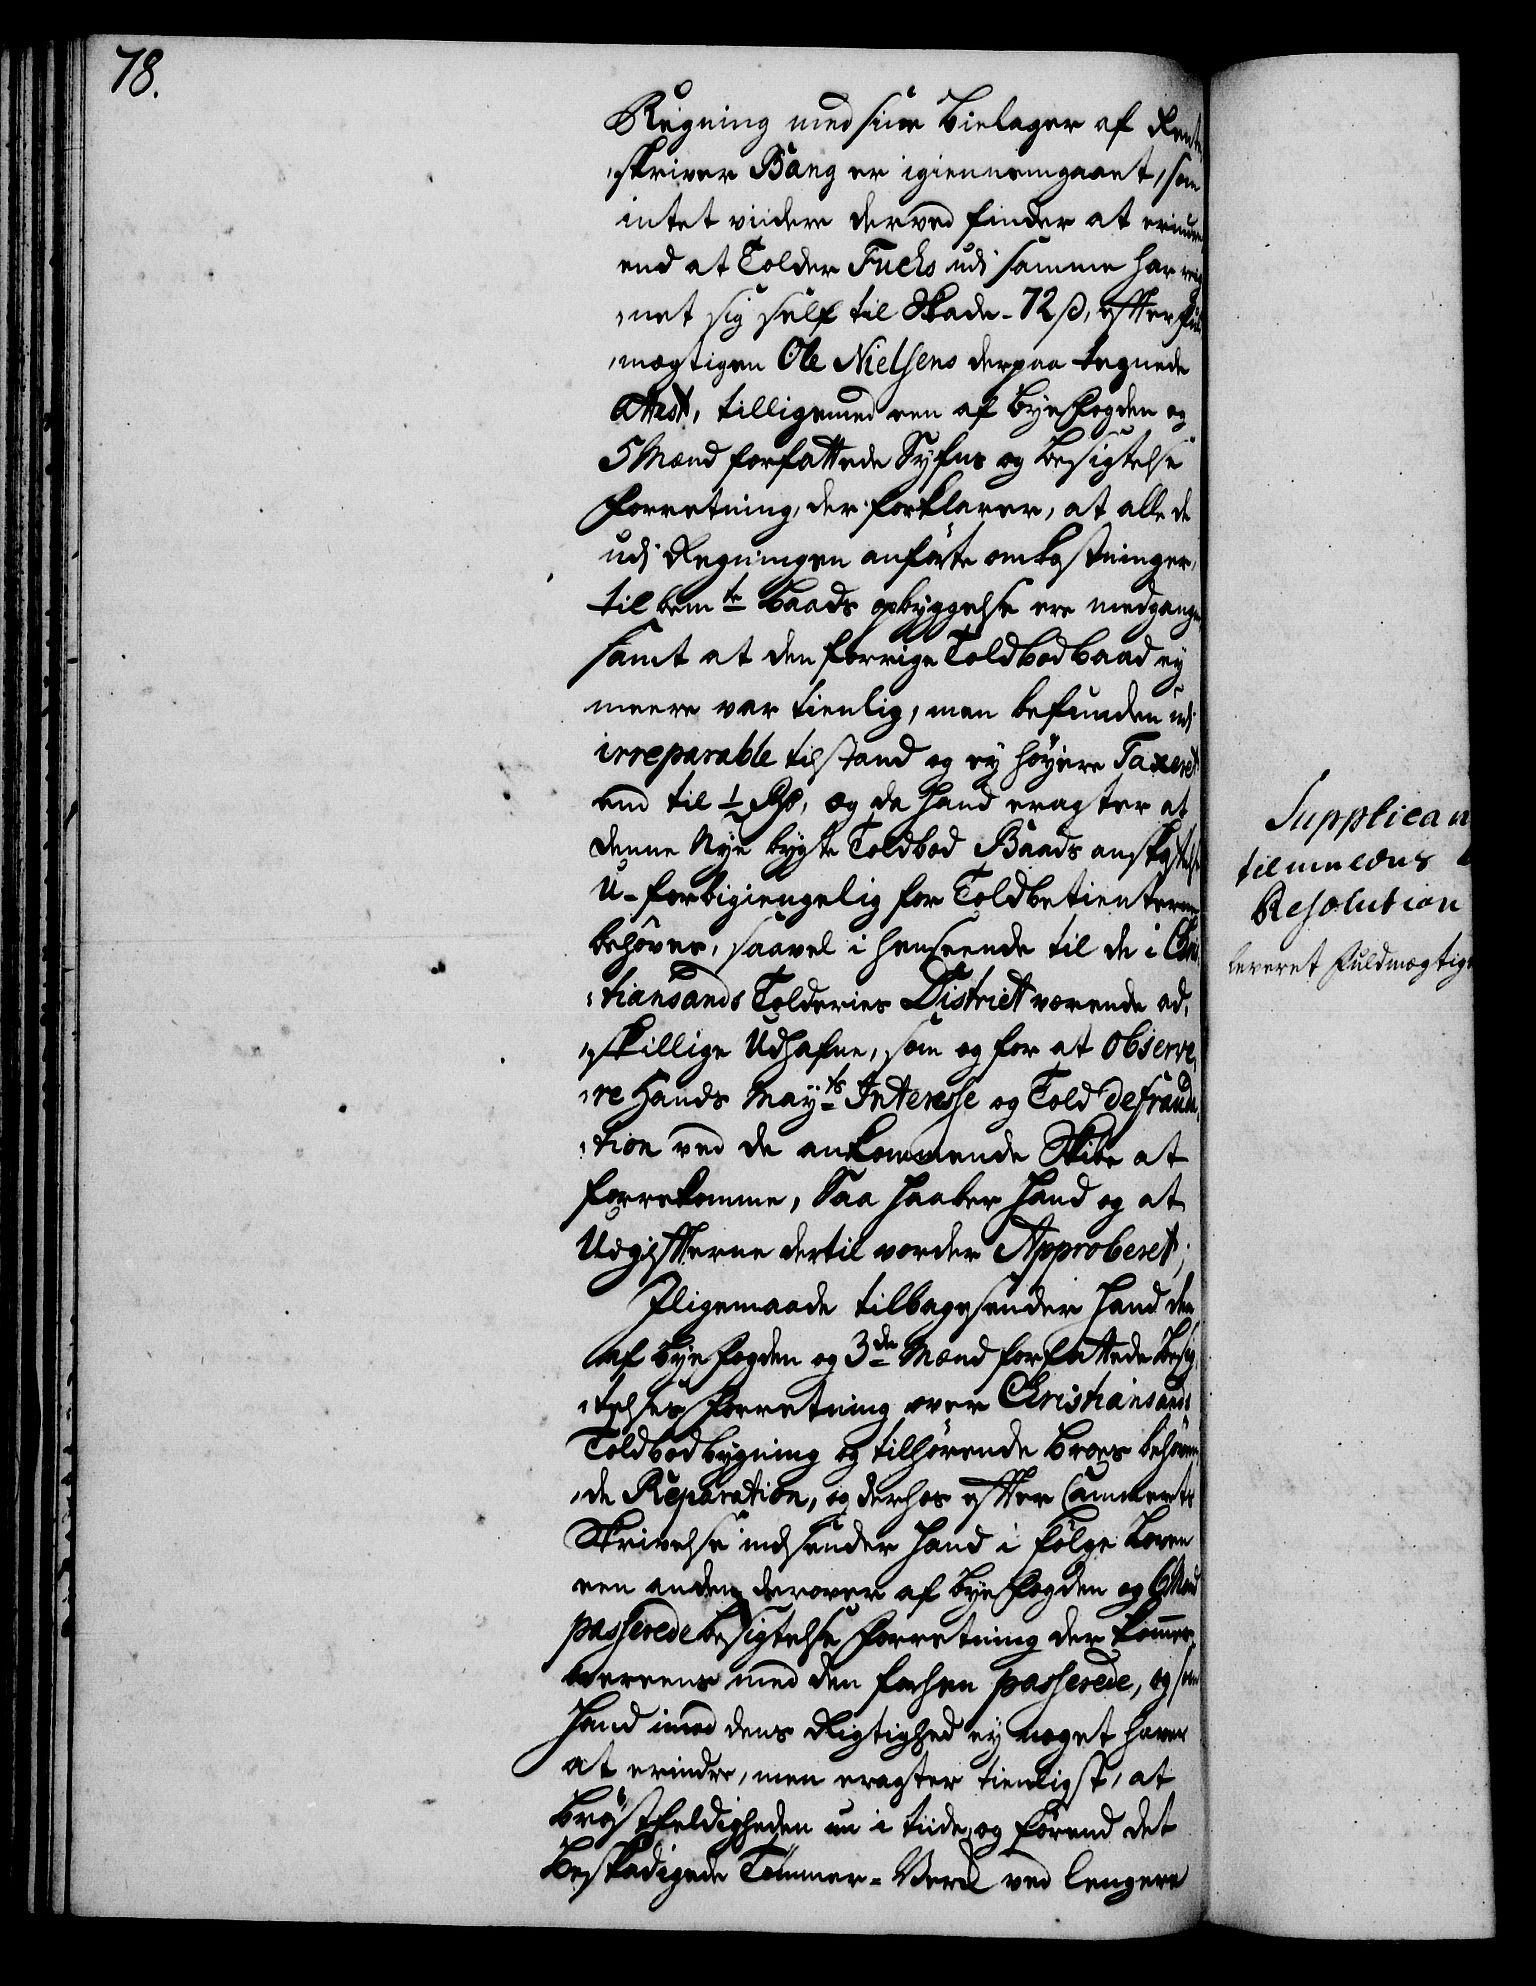 78.
Regning med sine Bielager af Rente
skriver Bang er igiennemgaaet, som
intet viidere derved finder at erindre
end at Tolder Fuchs udi samme har reig
net sig self til Skade - 72 ß, efter Fuld
mægtigen Ole Nielsens derpaa tegnede
Attest, tilligemed een af Byefogden og
5 Mænd forfattede Syhns og Besigtelse
Forretning, der forklarer, at alle de
udj Regningen anførte omkostninger,
til bem.te Baads opbyggelse ere medgangne
samt at den forrige Toldbod baad ej
meere var tienlig, men befunden udj
irreparable tilstand og ej høyere Taxeret
end til ½ Rd, og da Hand eragter at
denne Nye bygte Toldbod Baads anskaffelse
U-forbigiengelig for Toldbetienterne
behøves, saavel i henseende til de i Chri
stiansands Tolderies District værende ad,
skillige Udhafne, som og for at observe,
re Hands May.ts Interesse og Told defrauda,
tion ved de ankommende Skibe at
forrekomme, Saa haaber Hand og at
Udgifterne dertil vorder Approberet;
Iligemaade tilbagesender Hand den
af Byefogden og 3de Mænd forfattede Besig
telses Forretning over Christiansands
Toldbodbygning og tilhørende Broes behøven
de Reparation, og derhos efter Cammerets
Skrivelse indsender Hand i følge Loven
een anden derover af Byefogden og 6 Mænd
passerede besigtelse Forretning der kommer
overeens med den forhen passerede, og som
Hand imod dens Rigtighed ej noget haver
at erindre, men eragter tienligst, at
Brøstfeldigheden nu i tiide, og førend det
Beskadigede Tømmer-Verck ved lengere
Supplican
til meldes
Resolution
leveret Fuldmægtig